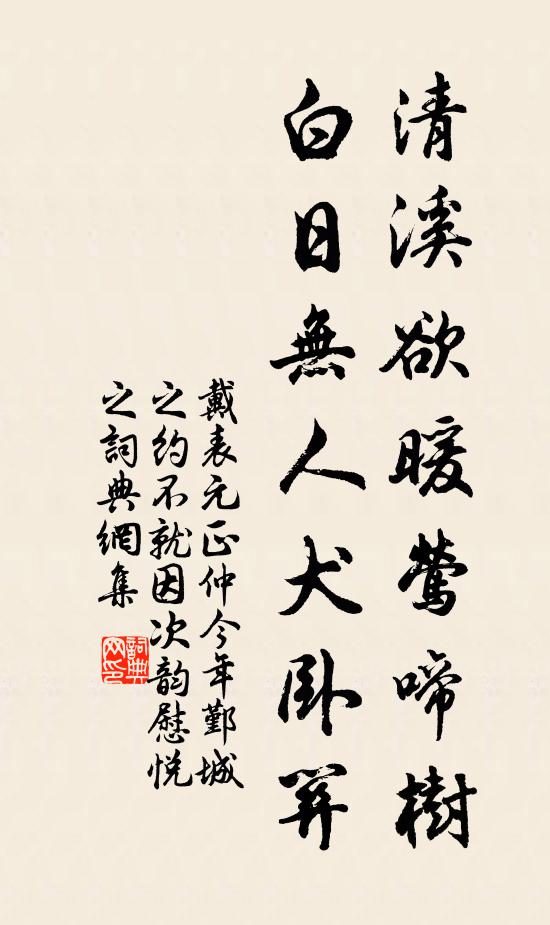 清溪欲暖鶯啼樹
白日無人犬卧
戴表元正仲今年鄞城
之約不就因次韵慰悦
之詞典網集
詞典
网印